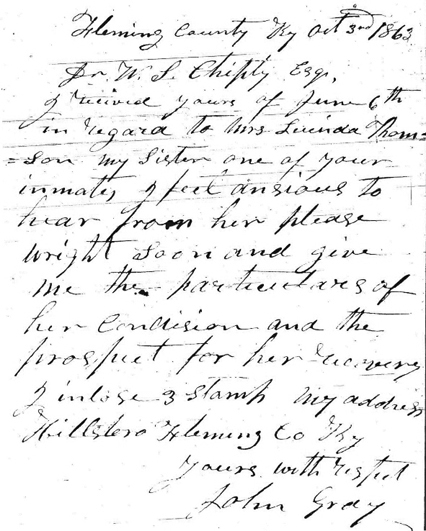 Fleming County Ky Oct 3rd 1863
Dr W. S. Chiply Esq,
I received yours of June 6th
in regard to Mrs Lucinda Thom=
=son my Sister one of your
inmates, I feel ansious to
hear from her please
wright soon and give
me the particulars of
her Condision and the
prospect for her recovery
I inlose 3 Stamp My address
Hillsboro Fleming Co Ky
Yours with respect
John Gray